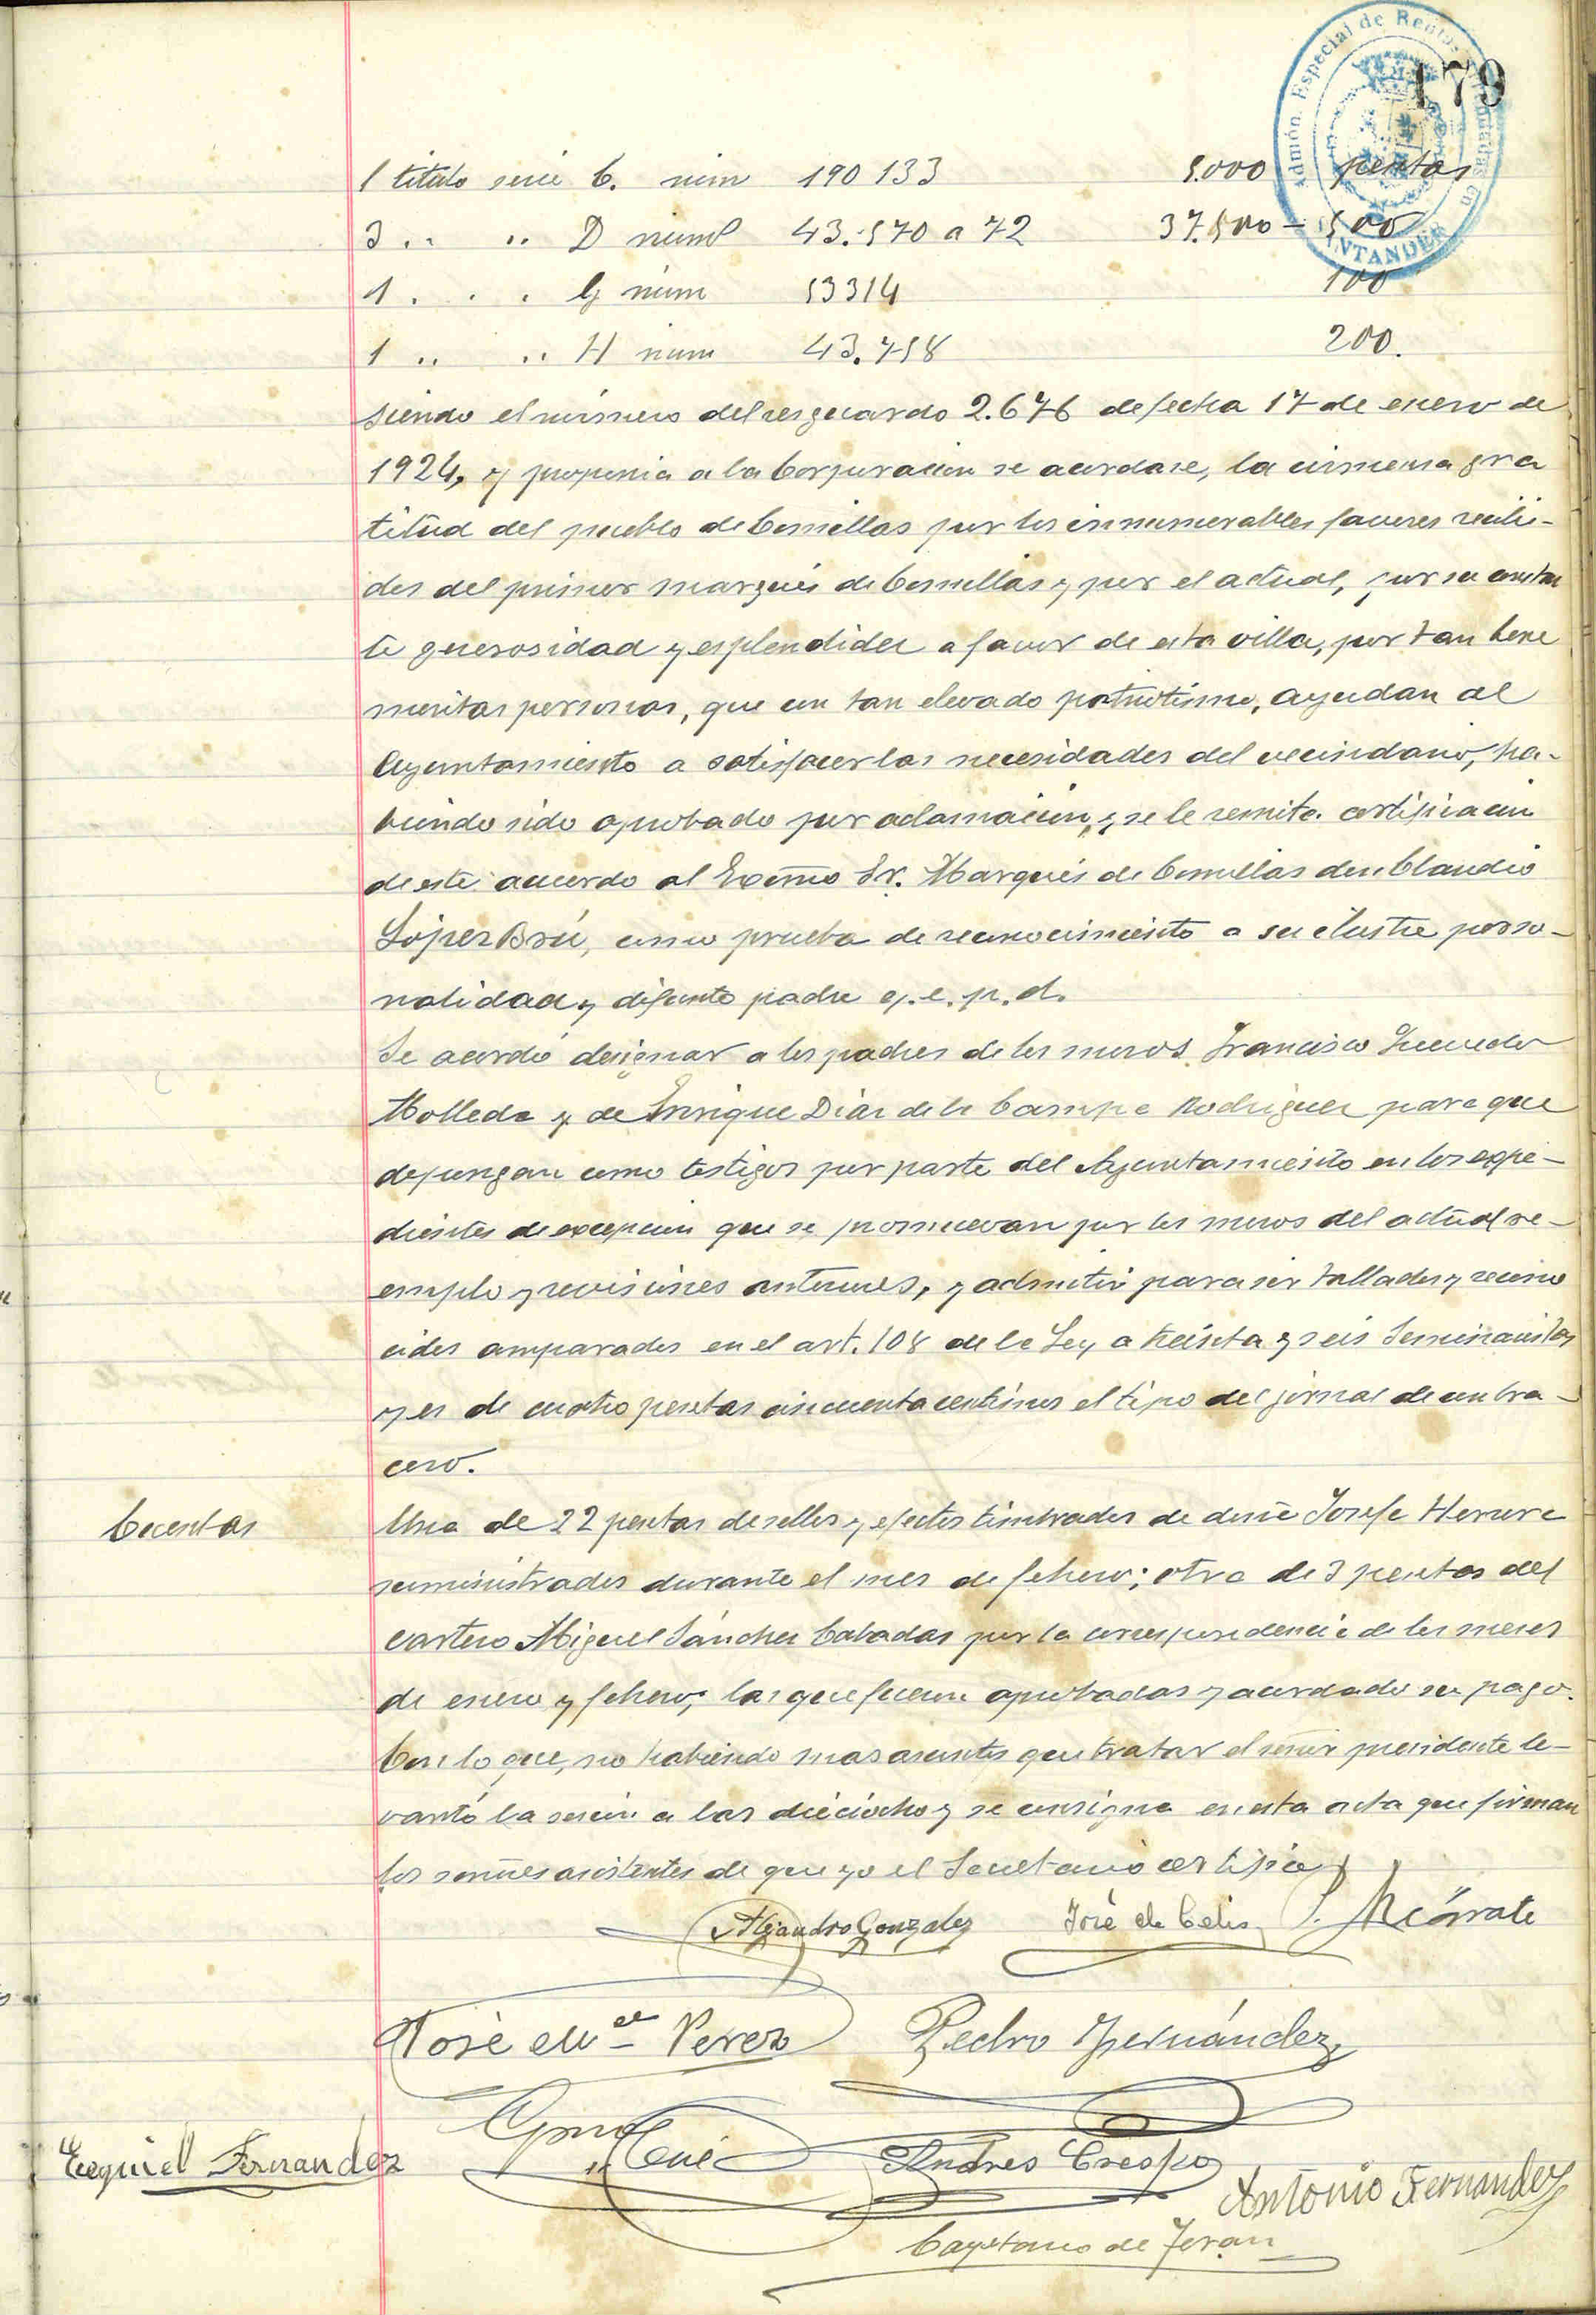 179
Admón. Especial de Rentas
SANTANDER
1 titulo serie C. núm 190 133 5.000 pesetas
3 .. .. D núms 43.570 a 72 37.500 - 500
1 . . . G núm 53314 100
1 .. .. H núm 43.758 200.
siendo el número del resguardo 2.676 de fecha 17 de enero de
1924, y proponia a la Corporacion se acordase, la inmensa gra
titud del pueblo de Comillas por los innumerables favores recibi-
dos del primer marqués de Comillas y por el actual, por su constan
te generosidad y esplendidez a favor de esta villa, por tan bene
meritas personas, que con tan elevado patriotismo, ayudan al
Ayuntamiento a satisfacer las necesidades del vecindario, ha-
biendo sido aprobado por aclamación, y se le remita certificacion
de este acuerdo al Excmo Sr. Marqués de Comillas don Claudio
López Brú, como prueba de reconocimiento a su ilustre perso-
nalidad y difunto padre q. e. p. d.
Se acordó designar a los padres de los mozos Francisco
Molleda y de Enrique Diaz de la Campa Rodriguez para que
depongan como testigos por parte del Ayuntamiento en los expe-
dientes de excepcion que se promuevan por los mozos del actual re-
emplo y revisiones anteriores, y admitir para ser tallados y recono
cidos amparados en el art. 108 de la Ley a treinta y seis Seminaristas
y es de cuatro pesetas cincuenta centimos el tipo del jornal de un bra-
cero.
Cuentas
Una de 22 pesetas de sellos y efectos timbrados de doña Josefa Herrera
suministrados durante el mes de febrero; otra de 3 pesetas del
cartero Miguel Sánchez Cabadas por la correspondencia de los meses
de enero y febrero, las que fueron aprobadas y acordado su pago.
Con lo que, no habiendo mas asuntos que tratar el señor presidente le-
vantó la sesion a las dieciocho y se consigna en esta acta que firman
los señores asistentes de que yo el Secretario certifico
Alejandro Gonzalez José de Celis
José Ma Perez Pedro Fernández
Ezequiel Fernandez Andres Crespo
Antonio Fernandez
Cayetano de Teran